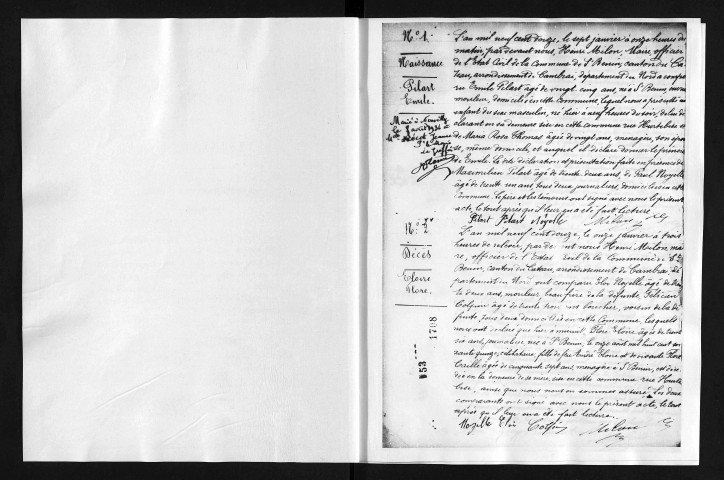 N° 1.
Naissance
Pilart
Emile.
L'an mil neuf cent douze, le sept janvier à onze heures du
matin, par devant nous, Henri Milon, Maire, officier
de l'Etat Civil de la Commune de St Benin, canton du Ca-
teau, arrondissement de Cambrai, département du Nord a compa-
ru Emile Pilart âgé de vingt cinq ans, né à St Benin,
mouleur, domicilié en cette Commune, lequel nous a présenté un
enfant du sexe masculin, né hier à neuf heures du soir, de lui dé-
clarant en sa demeure sise en cette commune rue
de Maria Rosa Thomas âgée de vingt ans, ménagère, son épou-
se, même domicile, et auquel il déclare donner le prénom
de Emile. Les dite déclaration et présentation faites en présence de
Maximilien Pilart âgé de trente deux ans, de Paul Noyelle
âgé de trente un ans, tous deux journaliers domiciliés en cette
Commune. Le père et les témoins ont signé avec nous le présent
acte, le tout après qu'il leur en a été fait lecture.
Pilart Pilart Noyelle Milon
N° 2
Décès
Eloire
Flore.
L'an mil neuf cent douze, le onze janvier à trois
heures de relevée, par devant nous Henri Milon, mai-
re, officier de l'Etat Civil de la Commune de St
Benin, canton du Cateau, arrondissement de Cambrai, dé-
partement du Nord ont comparu Eloi Noyelle âgé de tren-
te deux ans, mouleur, beau frère de la défunte, Félicien
Colpin âgé de trente ans, voisin de la dé-
funte, tous deux domiciliés en cette Commune, lesquels
nous ont déclaré que hier à minuit, Flore Eloire âgée de trente
six ans, journalière, née à St Benin, le onze août mil huit cent soi-
xante quinze, célibataire, fille de feu André Eloire et de vivante Rosa
âgée de cinquante sept ans, ménagère à St Benin, est décé-
dée en la demeure de sa mère, sise en cette commune rue Haute
ainsi que nous nous en sommes assuré. Les deux
comparants ont signé avec nous le présent acte, le tout
après qu'il leur en a été fait lecture.
Noyelle Eloi Colpin Milon
153 1708